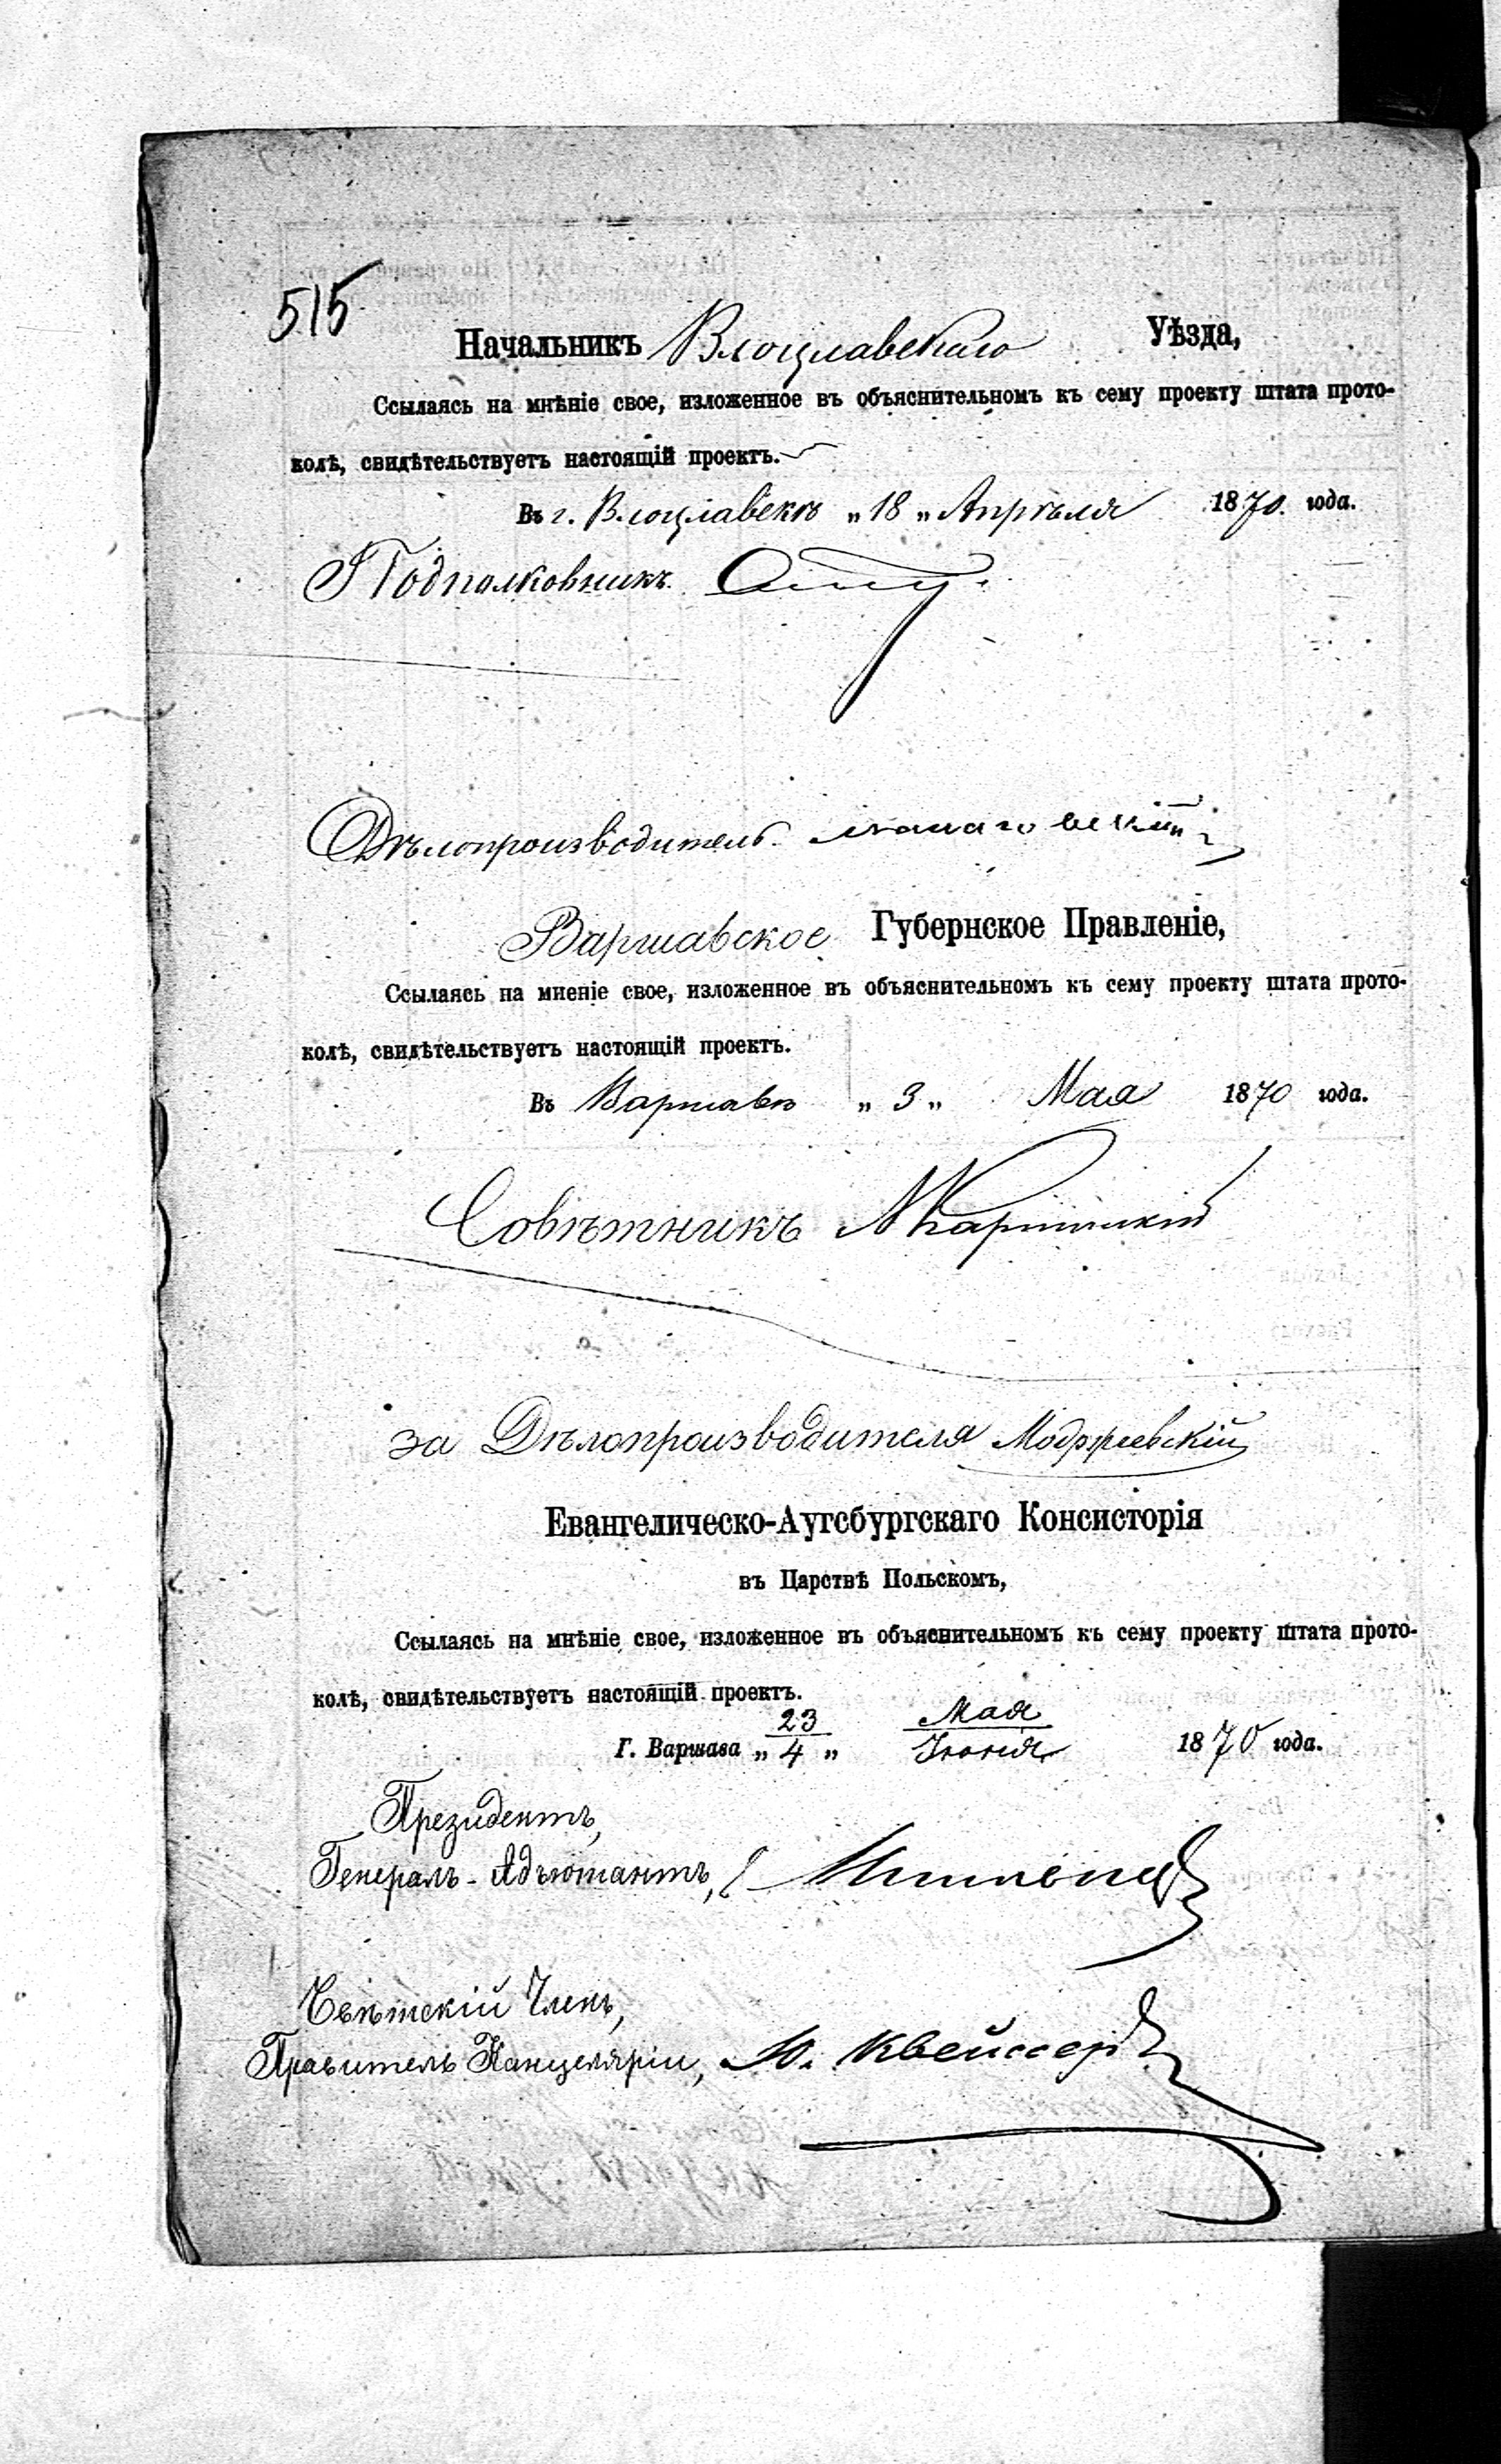 515
Начальникъ Влоцлавскаго Уѣзда,
Ссылаясь на мнѣніе свое, изложенное въ объяснительномъ къ сему проекту штата прото-
колѣ, свидѣтельствуетъ настоящій проектъ.
Въ г. Влоцлавскѣ „18„ Апрѣля 1870. года.
Подполковникъ
Дѣлопроизводитель
Варшавское Губернское Правленіе,
Ссылаясь на мненіе свое, изложенное въ объяснительномъ къ сему проекту штата прото-
колѣ, свидѣтельствуетъ настоящій проектъ.
Въ Варшавѣ „3„ Мая 1870 года.
Совѣтникъ
за Дѣлопроизводителя Моджевскій
Евангелическо-Аугсбургскаго Консисторія
въ Царствѣ Польскомъ,
Ссылаясь на мнѣніе свое, изложенное въ объяснительномъ къ сему проекту штата прото-
колѣ, свидѣтельствуетъ настоящій проектъ.
23 Мая
Г. Варшава „4„ Іюня 1870 года.
Президентъ,
Генералъ-Адъютантъ,
Свѣтскій Членъ,
Правитель Канцеляріи, Ю. Квейссеръ